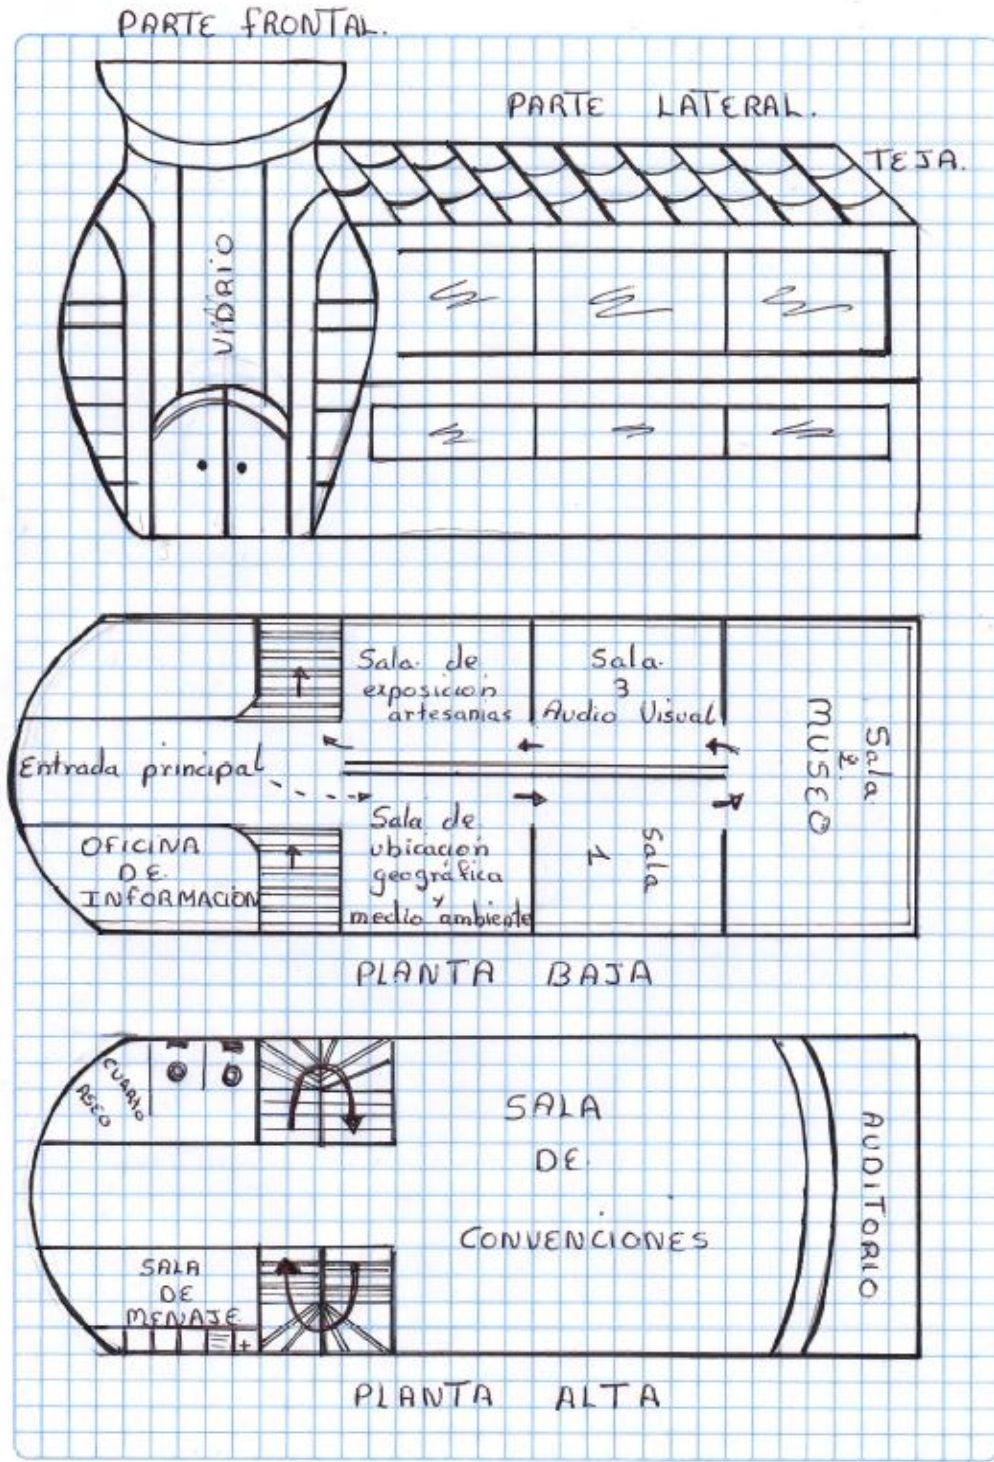 PARTE FRONTAL.
PARTE LATERAL.
TEJA.
VIDRIO
Sala de
exposición
artesanias
Sala
3
Audio Visual
Sala
2.
MUSEO
Entrada principal
OFICINA
DE
INFORMACIÓN
Sala de
ubicación
geográfica
y
medio ambiente
Sala
1
PLANTA BAJA
CUARTO
ASEO
SALA
DE
CONVENCIONES
AUDITORIO
SALA
DE
MENAJE
PLANTA ALTA